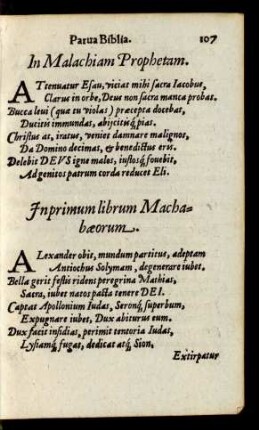 Parua Biblia. 107
In Malachiam Prophetam.
ATtenuatur Esau, viciat mihi sacra Iacobus,
Clarus in orbe, Deus non sacra manca probat.
Bucca leui (quæ tu violas) præcepta docebat,
Ducitis immundas, abijcitisq́; pias.
Christus at, iratus, veniet damnare malignos,
Da Domino decimas, & benedictus eris.
Delebit DEVS igne malos, iustosq́; fouebit,
Ad genitos patrum corda reducet Eli.
In primum librum Macha=
bæorum.
ALexander obit, mundum partitus, adeptam
Antiochus Solymam, degenerare iubet.
Bella gerit festis rident peregrina Mathias,
Sacra, iubet natos pacta tenere DEI.
Captat Apollonium Iudas, Seronq́; superbum,
Expugnare iubet, Dux abiturus eum.
Dux facit insidias, perimit tentoria Iudas,
Lysiamq́; fugat, dedicat atq́; Sion,
Extirpatur